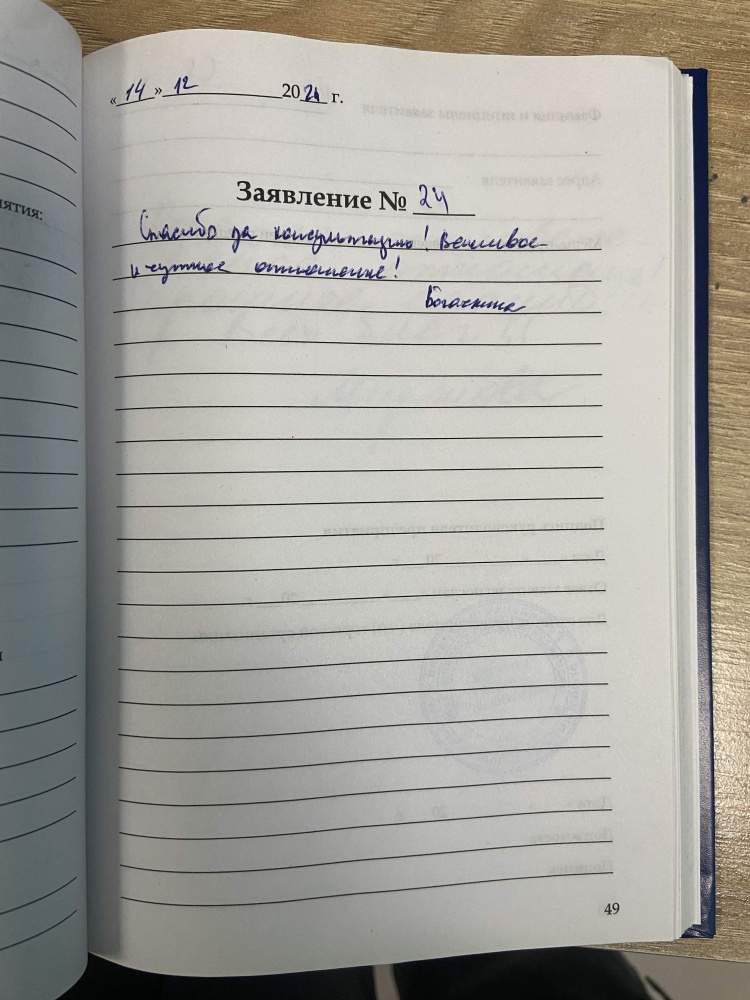 «14» 12 2021 г.
Заявление № 24
Спасибо за консультацию! Вежливое
и чуткое отношение!
Богаткина
ятия:
49